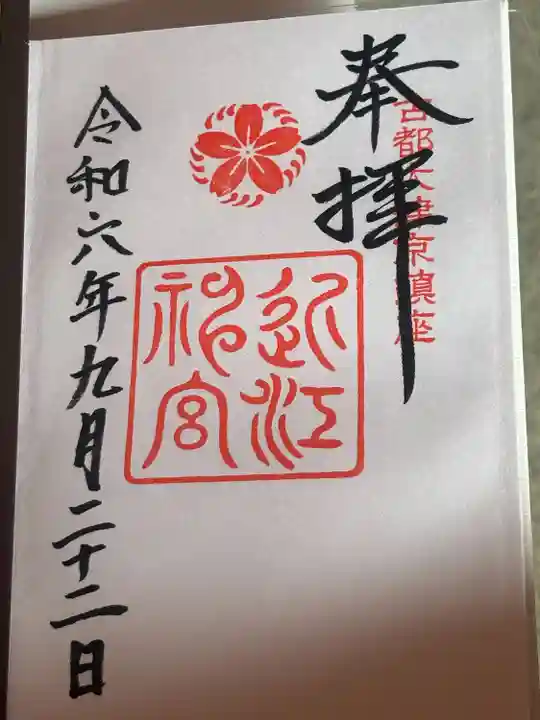 奉拝
古都大津京鎮座
近江神宮
令和六年九月二十二日